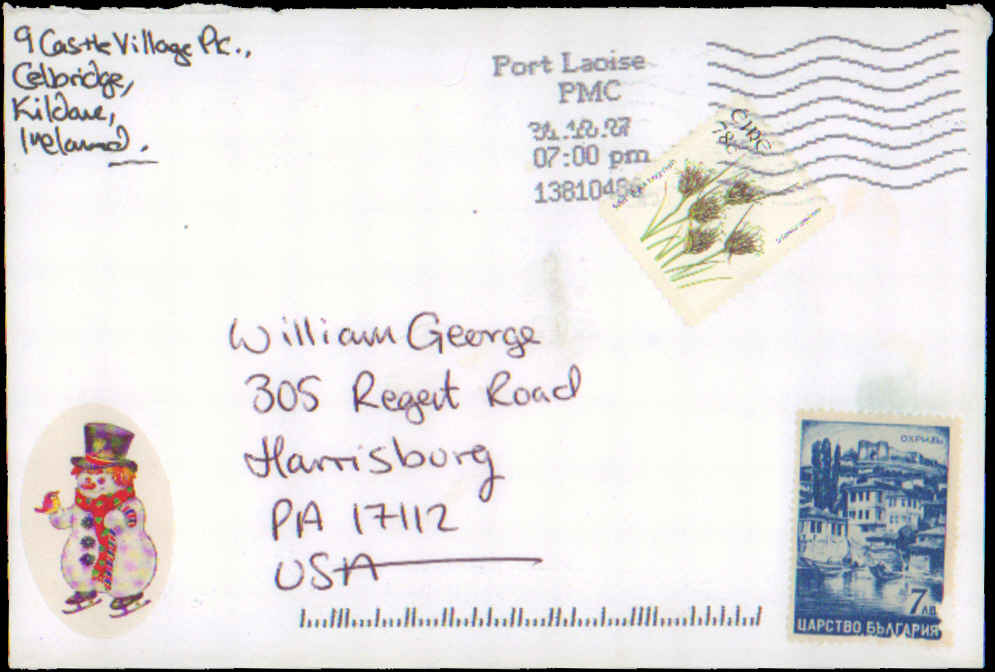 9 Castle Village Pk.,
Celbridge,
Kildare,
Ireland.
Port Laoise
PMC
07:00 pm
ÉIRE
78c
William George
305 Regent Road
Harrisburg
PA 17112
USA
ОХРИДЪ
7 ЛВ
ЦАРСТВО БЪЛГАРИЯ